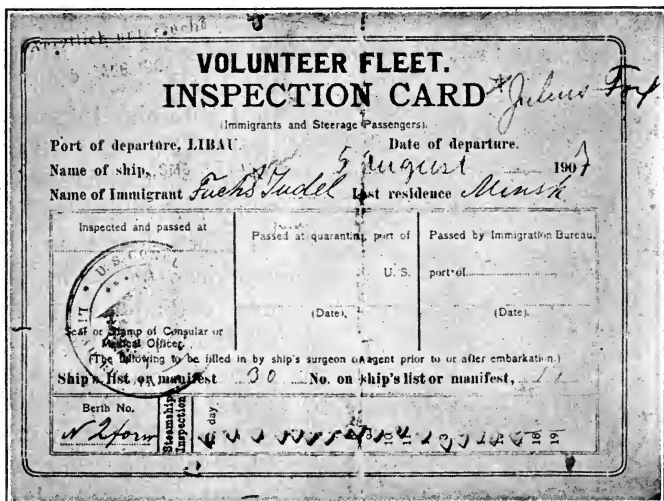 VOLUNTEER FLEET.
INSPECTION CARD
Julius Fox
(Immigrants and Steerage Passengers).
Port of departure, LIBAU. Date of departure.
Name of ship, 5 august 1907
Name of Immigrant Fuchs Judel Last residence Minsk
Inspected and passed at
Passed at quarantine, port of
U. S.
(Date).
Passed by Immigration Bureau,
port of
(Date).
Seal or Stamp of Consular or
Medical Officer.
(The following to be filled in by ship's surgeon or agent prior to or after embarkation.)
Ship's list or manifest 30 No. on ship's list or manifest,
Berth No.
Steamship
Inspection
day
18
19